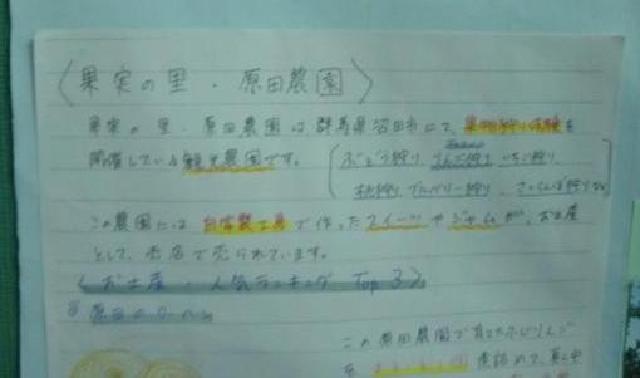 〈果実の里・原田農園〉
果実の里・原田農園は群馬県沼田市にて、果物狩り体験を
開催している観光農園です。
(ぶどう狩り、りんご狩り、いちご狩り、
桃狩り、ブルーベリー狩り、さくらんぼ狩りなど)
この農園には自家製工房で作ったスイーツやジャムが、お土産
として、売店で売られています。
〈お土産・人気ランキング Top 3〉
原田のバーム
この原田農園で育てたりんご
を